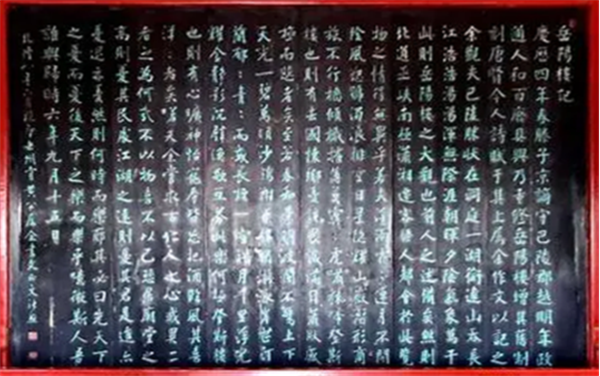 岳陽樓記
慶曆四年春滕子京謫守巴陵郡越明年政
通人和百廢具興乃重修岳陽樓增其舊制
刻唐賢今人詩賦于其上屬余作文以記之
予觀夫巴陵勝狀在洞庭一湖銜遠山吞長
江浩浩湯湯橫無際涯朝暉夕陰氣象萬千
此則岳陽樓之大觀也前人之述備矣然則
北通巫峽南極瀟湘遷客騷人多會于此覽
物之情得無異乎若夫霪雨霏霏連月不開
陰風怒號濁浪排空日星隱耀山岳潛形商
旅不行檣傾楫摧薄暮冥冥虎嘯猿啼登斯
樓也則有去國懷鄉憂讒畏譏滿目蕭然感
極而悲者矣至若春和景明波瀾不驚上下
天光一碧萬頃沙鷗翔集錦鱗游泳岸芷汀
蘭郁郁青青而或長煙一空皓月千里浮光
耀金靜影沉璧漁歌互答此樂何極登斯樓
也則有心曠神怡寵辱皆忘把酒臨風其喜
洋洋者矣嗟夫余嘗求古仁人之心或異二
者之為何哉不以物喜不以己悲居廟堂之
高則憂其民處江湖之遠則憂其君是進亦
憂退亦憂然則何時而樂耶其必曰先天下
之憂而憂後天下之樂而樂乎噫微斯人吾
誰與歸時六年九月十五日